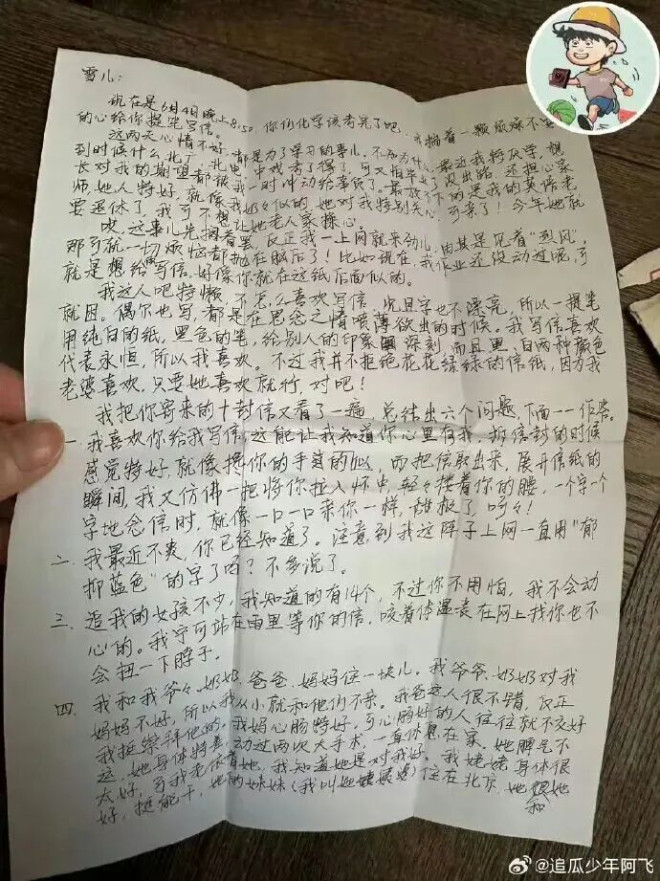 雪儿：
现在是6月4日晚上8:50，你们化学该考完了吧，我揣着一颗
的心给你提笔写信。
这两天心情不好，都是为了学习的事儿，不知为什么，最近我特厌学，想
到时候什么北广、北电、中戏考了得了，可又担心没出路，还担心家
长对我的期望都被我一时冲动给辜负了。最放不下的是我的英语老
师，她人特好，就像我奶奶似的，她对我特别关心，可亲了！今年她就
要退休了，我可不想让她老人家操心。
唉，这事儿先搁着罢，反正我一上网就来劲儿，尤其是见着“烈风”，
那可就一切烦恼都抛在脑后了！比如说现在，我作业还没动过呢，可
就是想给你写信，好像你就在这纸后面似的。
我这人吧特懒，不怎么喜欢写信，况且字也不漂亮，所以一提笔
就困。偶尔也写，都是在思念之情喷薄欲出的时候。我写信喜欢
用纯白的纸，黑色的笔，给别人的印象深刻，而且黑、白两种颜色
代表永恒，所以我喜欢。不过我并不拒绝花花绿绿的信纸，因为我
老婆喜欢，只要她喜欢就行，对吧！
我把你寄来的十封信又看了一遍，总结出六个问题，下面一一作答。
一、我喜欢你给我写信，这能让我知道你心里有我，拆信封的时候
感觉特好，就像撸你的手套的似，而把信取出来，展开信纸的
瞬间，我又仿佛一把将你拉入怀中，轻々搂着你的腰，一个字一个
字地念信时，就像一口一口亲你一样，甜极了，呵々！
二、我最近不爽，你已经知道了。注意到我这阵子上网一直用“郁
抑蓝色”的字了吗？不多说了。
三、追我的女孩不少，我知道的有14个，不过你不用怕，我不会动
心的。我宁可站在雨里等你的信，咬着体温表在网上找你也不
会扭一下脖子。
四、我和我爷々、奶奶、爸爸、妈妈住一块儿。我爷爷、奶奶对我
妈妈不好，所以我从小就和他们不亲。我爸这人很不错，反正
我挺崇拜他的，我妈心肠特好，可心肠好的人往往就不交好
运，她身体特差，动过两次大手术，一直休息在家。她脾气不
太好，可我老依着她，我知道她是对我好。我姥姥身体很
好，挺能干，她的妹妹（我叫她姨姥姥）住在北京，她和她
@追瓜少年阿飞